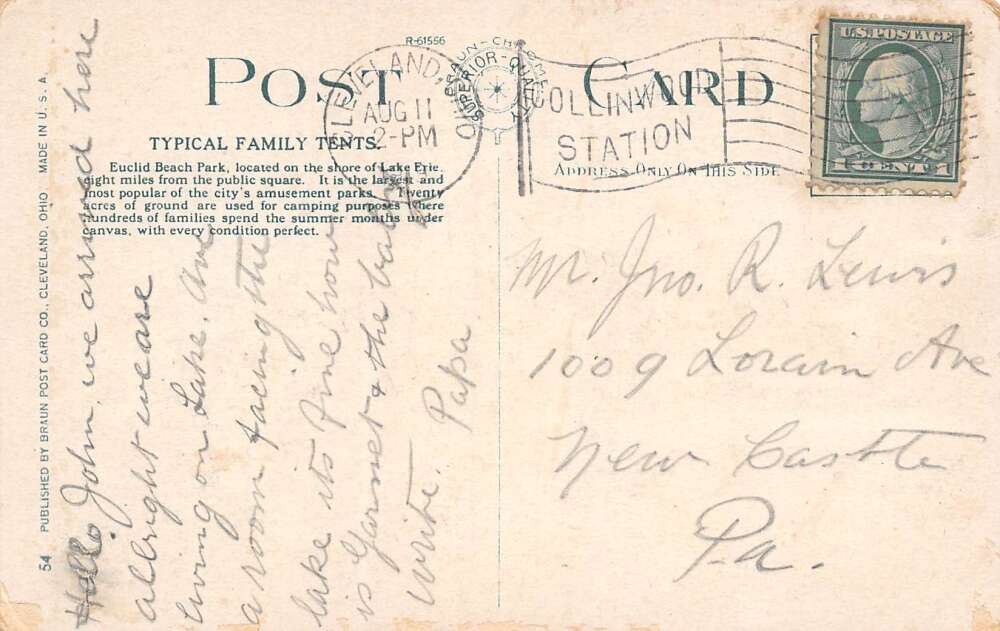 R-61556
POST CARD
BRAUN-CHROME
SUPERIOR-QUALITY
CLEVELAND, OHIO
AUG 11
2-PM
COLLINWOOD
STATION
U.S. POSTAGE
TYPICAL FAMILY TENTS.
Euclid Beach Park, located on the shore of Lake Erie,
eight miles from the public square. It is the largest and
most popular of the city's amusement parks. Twenty
acres of ground are used for camping purposes where
hundreds of families spend the summer months under
canvas, with every condition perfect.
ADDRESS ONLY ON THIS SIDE
Hello John, we arrived here
allright we are
living on Lake. Ave
a room facing the
lake its fine how
is Garnet & the baby
write. Papa
Mr. Jno. R. Lewis
1009 Lorain Ave
New Castle
Pa.
54 PUBLISHED BY BRAUN POST CARD CO., CLEVELAND, OHIO MADE IN U. S. A.